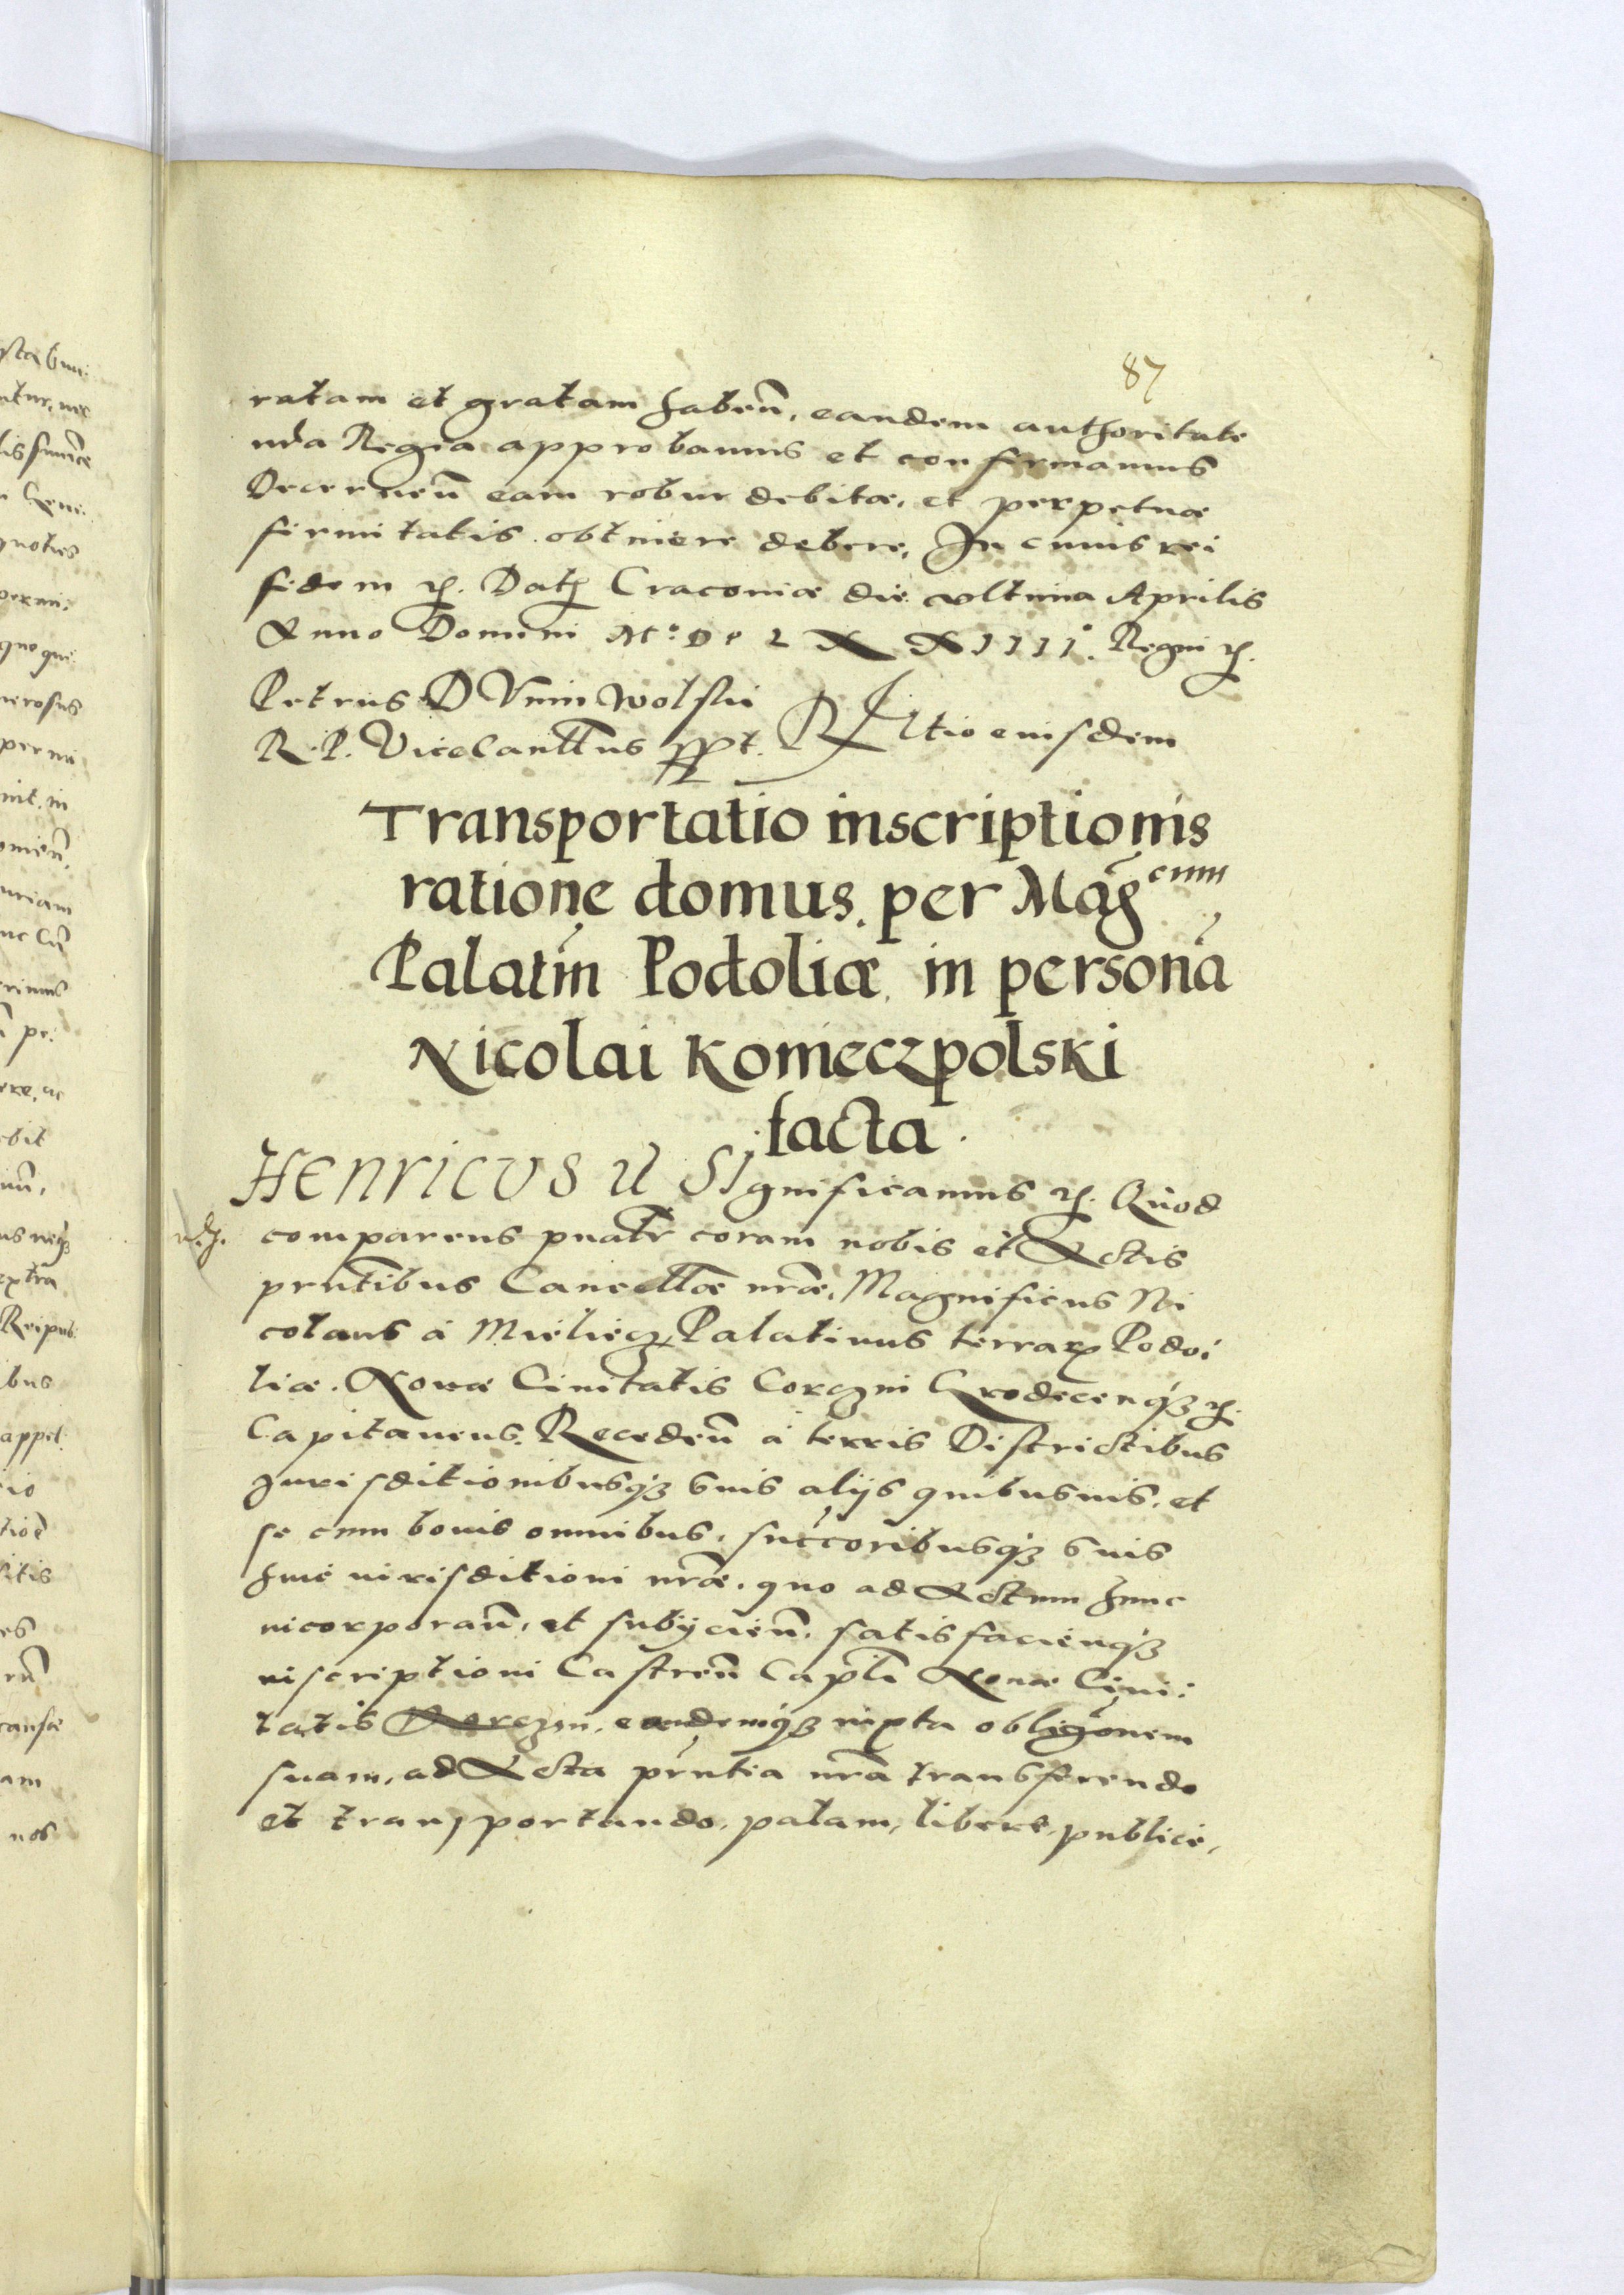 87
ratam et gratam haben̄, eandem authoritate
nr̄a Regia approbamus et confirmamus
Decernen̄ eam robur debitæ, et perpetuæ
firmitatis obtinere debere, In cuius rei
fidem ꝛc. Datꝫ Cracoviæ die ultima Aprilis
Anno Domini Mº: D L X X IIIIº. Regni ꝛc.
Petrus DVninwolski
R. P. Vicecanll̄us sspt. Rltio eiusdem
Transportatio inscriptionis
ratione domus per Mag̃cum
Palatin̄ Podoliæ in persona
Nicolai Konieczpolski
facta.
HENRICUS ꝛc SIgnificamus ꝛc. Quod
comparens pn̄atr̄ coram nobis et Actis
prn̄tibus Canecll̄æ nr̄æ, Magnificus Ni
colaus à Mieliecz Palatinus terraꝝ Podoi
liæ. Novæ Civitatis Corczin Grodecenqꝫ ꝛc.
Capitaneus. Receden̄ à terris Districtibus
Jurisditionibusqꝫ suis alijs quibusvis, et
se cum bonis omnibus, succ̄oribusqꝫ suis
huic iurisditioni nr̄æ, quo ad Actum hunc
incorporan̄, et subijcien̄, satisfacienqꝫ
inscriptioni Castren̄ Capl̄i Novæ Civi:
tatis Corczin, eandemqꝫ iuxta obligōnem
suam, ad Acta prn̄tia nr̄a transferendo
et transportando, palam, libere, publice,